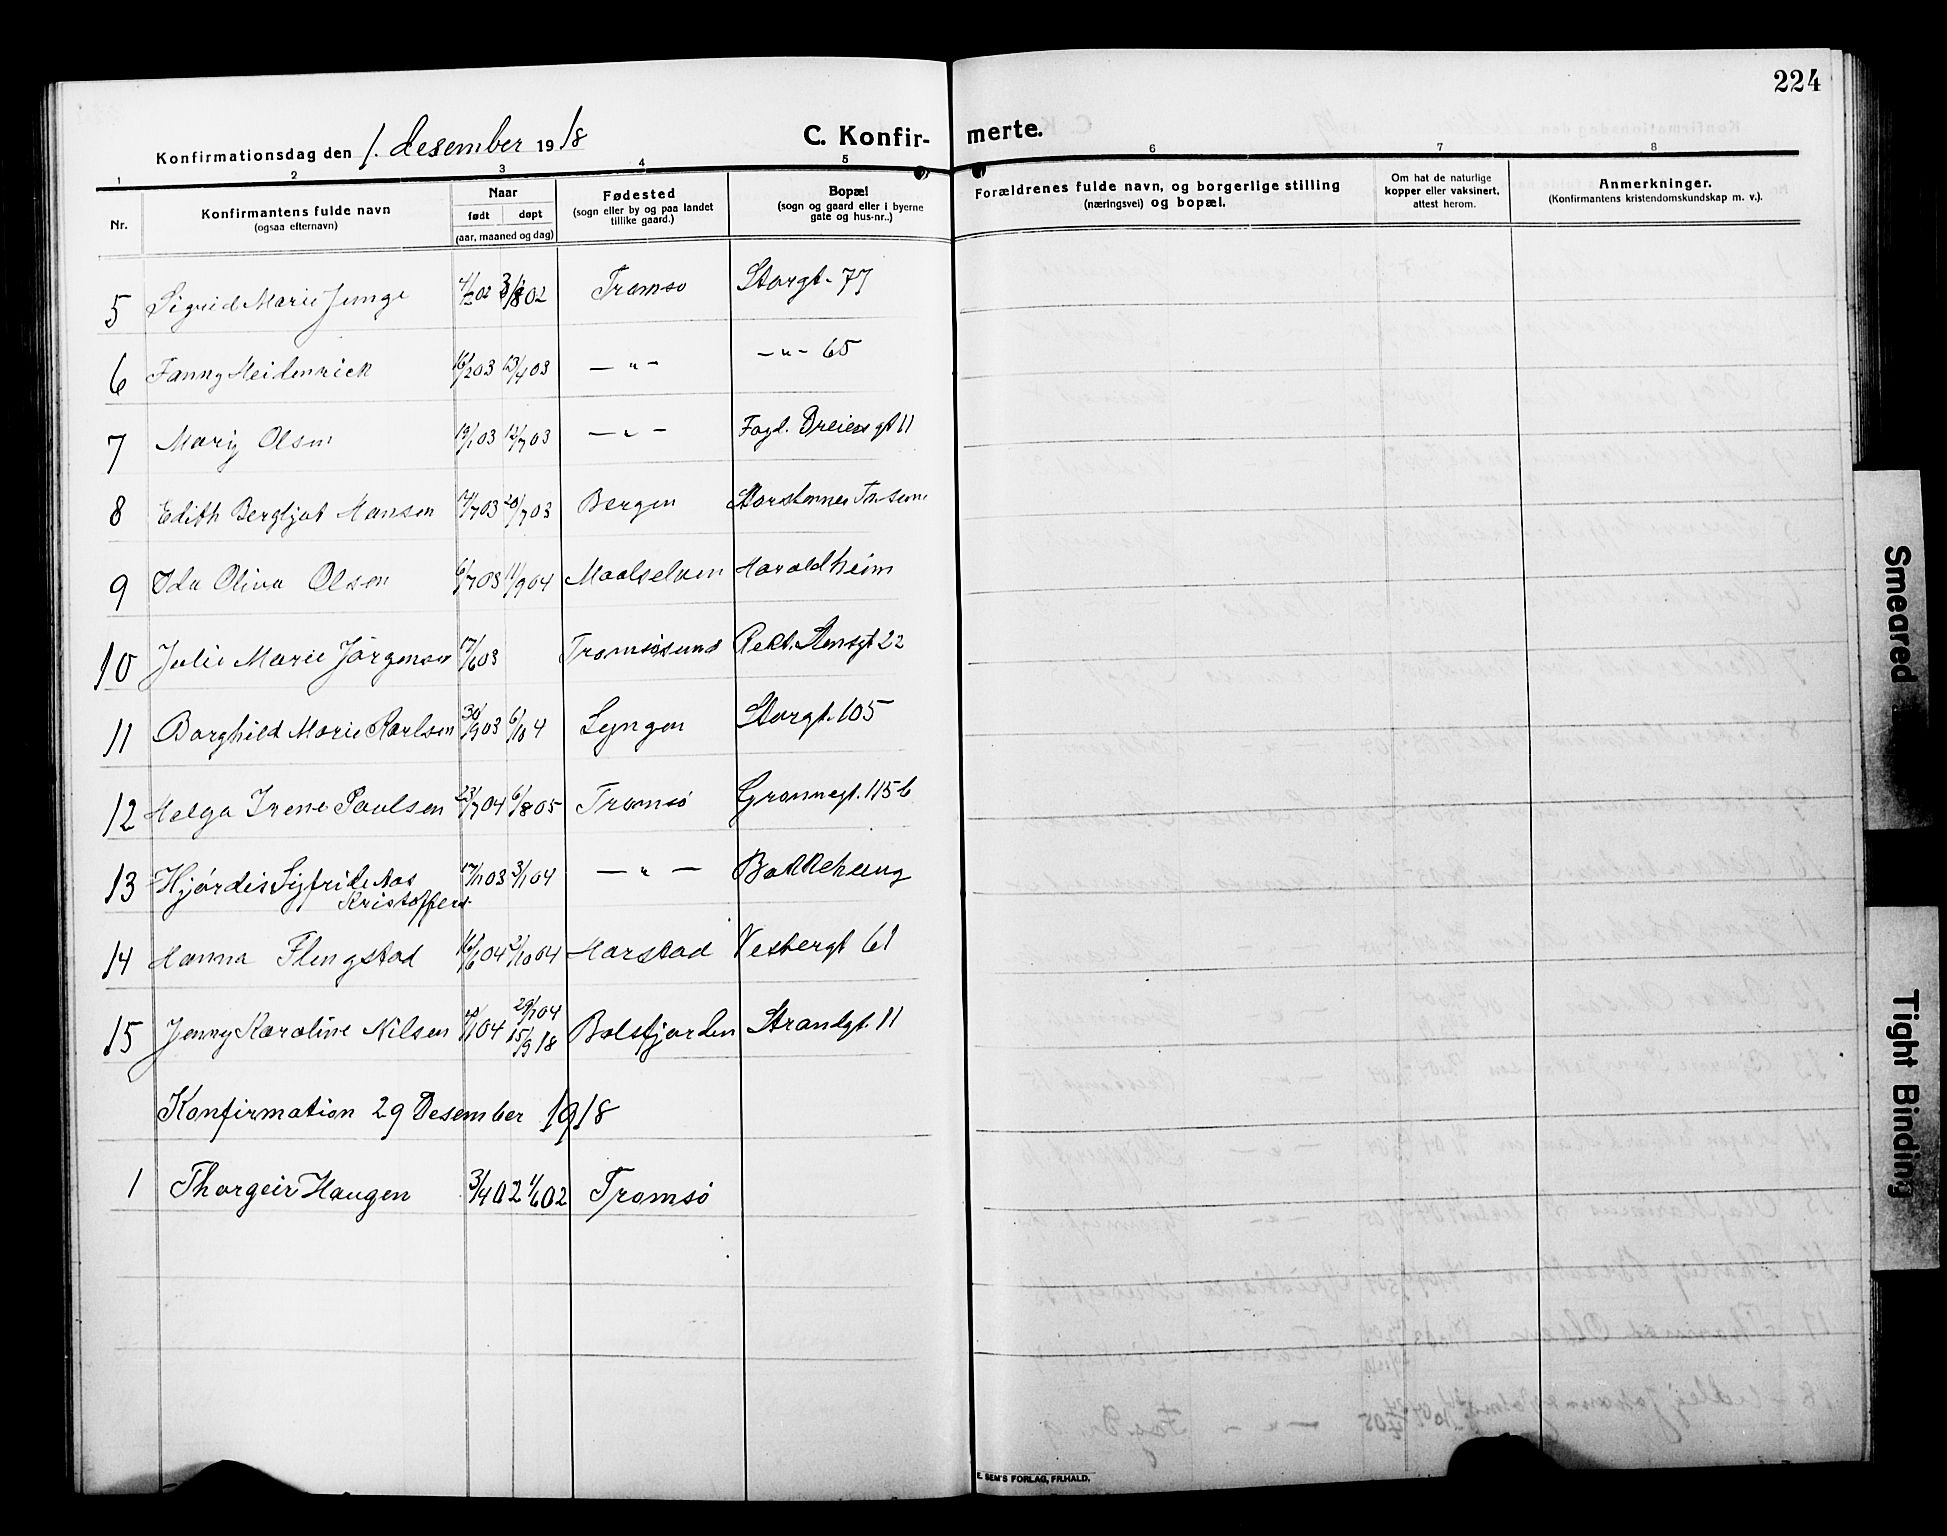 224
Konfirmationsdag den 1. desember 1918
C. Konfir-
merte.
1 2 3 4 5 6 7 8
Nr.
Konfirmantens fulde navn
(ogsaa efternavn)
Naar
født døpt
(aar, maaned og dag)
Fødested
(sogn eller by og paa landet
tillike gaard.)
Bopæl
(sogn og gaard eller i byerne
gate og hus-nr..)
Forældrenes fulde navn, og borgerlige stilling
(næringsvei) og bopæl.
Om hat de naturlige
kopper eller vaksinert,
attest herom.
Anmerkninger.
(Konfirmantens kristendomskundskap m. v.).
5 Sigrid Marie Junge 02 02 Tromsø Storgt. 77
6 Fanny Heidenrich 16/2 03 13/4 03 — " — — " — 65
7 Mary Olsen 19/1 03 12/7 03 — " — Fogd. Dreiers gt 11
8 Edith Bergljot Hansen 03 20/7 03 Bergen Storstennes
9 Ida Oliva Olsen 6/7 03 11/9 04 Maalselven Haraldheim
10 Julie Marie Jørgensen 17/6 03 Tromsøsund Rekt. Stensgt 22
11 Borghild Marie Karlsen 30/9 03 6/1 04 Lyngen Storgt. 105
12 Helga Irene Paulsen 23/7 04 6/8 05 Tromsø Grønnegt. 115 b
13 Hjørdis Sigfride Aas 17/11 03 3/1 04 — " — Bakkehaug
Kristoffers.
14 Hanna Flengstad 16/6 04 2/10 04 Harstad Vestergt 61
15 Jenny Karoline Nilsen 04 29/1 04 Balsfjorden Strandgt. 11
15/9 18
Konfirmation 29 Desember 1918
1 Thorgeir Haugen 3/4 02 02 Tromsø
E. SEM'S FORLAG, FR.HALD.
Smeared
Tight Binding